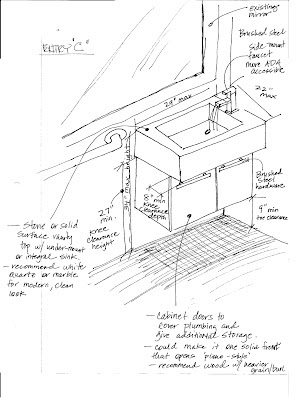 existing
mirror
ENTRY "C"
Brushed steel
side mount
faucet
more ADA
accessible
24" max
22"
max
34" max height
Brushed
Steel
hardware
8" min
knee
clearance
depth
27"
min.
knee
clearance
height
9" min
toe clearance
- stone or solid
surface vanity
top w/ under-mount
or integral sink.
- recommend white
quartz or marble
for modern, clean
look
- cabinet doors to
cover plumbing and
give additional storage.
- could make it one solid front
that opens 'piano-style'
- recommend wood w/ heavier
grain/burl